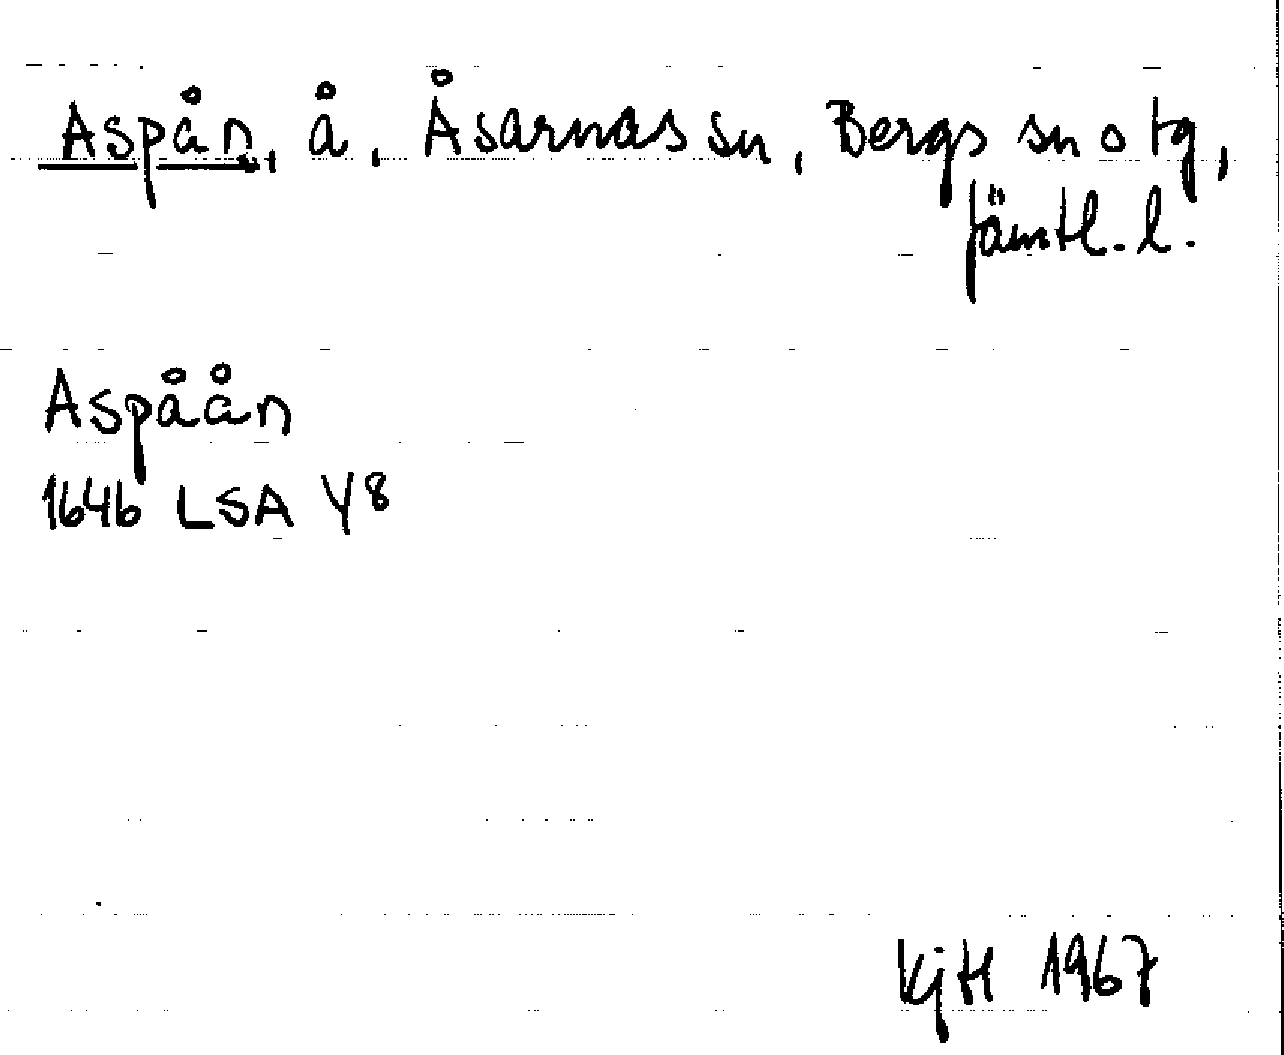 Aspån, å, Åsarnas sn, Bergs sn o tg,
Jämtl. l.
Aspåån
1646 LSA Y8
KjH 1967